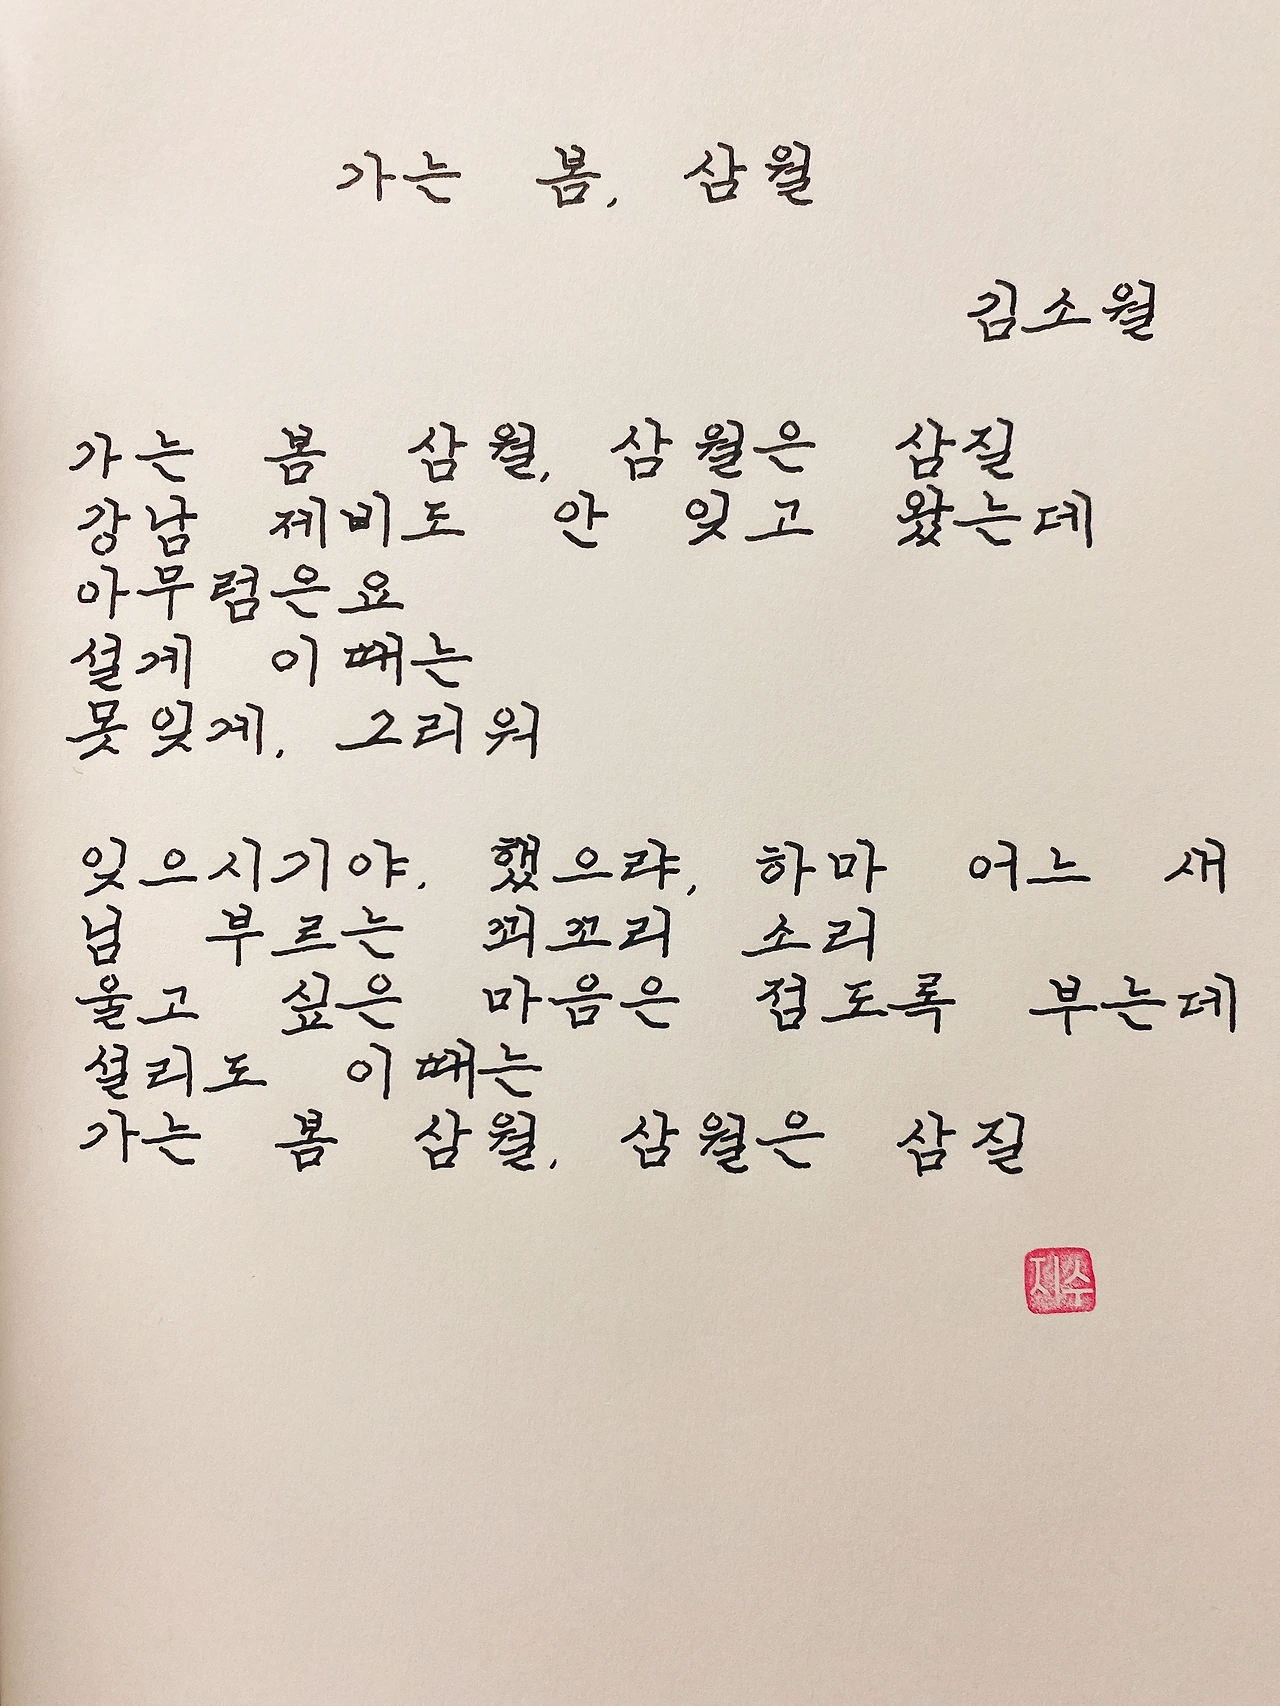 가는 봄, 삼월
김소월
가는 봄 삼월, 삼월은 삼질
강남 제비도 안 잊고 왔는데
아무렴은요
설게 이때는
못잊게, 그리워
잊으시기야, 했으랴, 하마 어느 새
님 부르는 꾀꼬리 소리
울고 싶은 마음은 점도록 부는데
설리도 이때는
가는 봄 삼월, 삼월은 삼질
지수